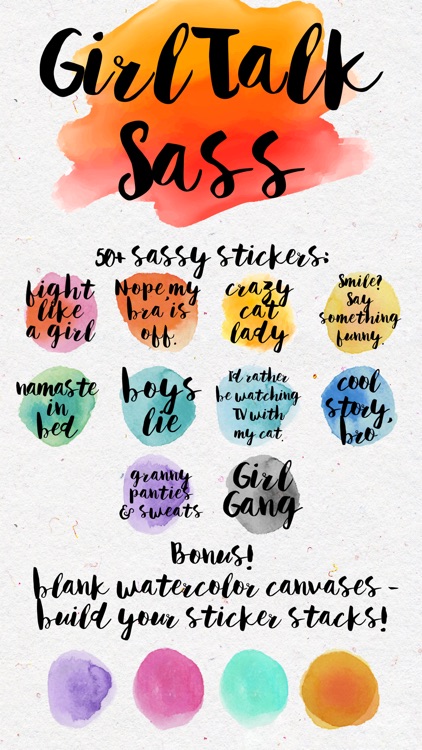 Girl Talk
Sass
50+ sassy stickers:
fight
like
a girl
Nope my
bra is
off.
crazy
cat
lady
Smile?
Say
something
funny.
namaste
in
bed
boys
lie
I'd rather
be watching
TV with
my cat.
cool
story,
bro
granny
panties
& sweats
Girl
Gang
Bonus!
blank watercolor canvases -
build your sticker stacks!